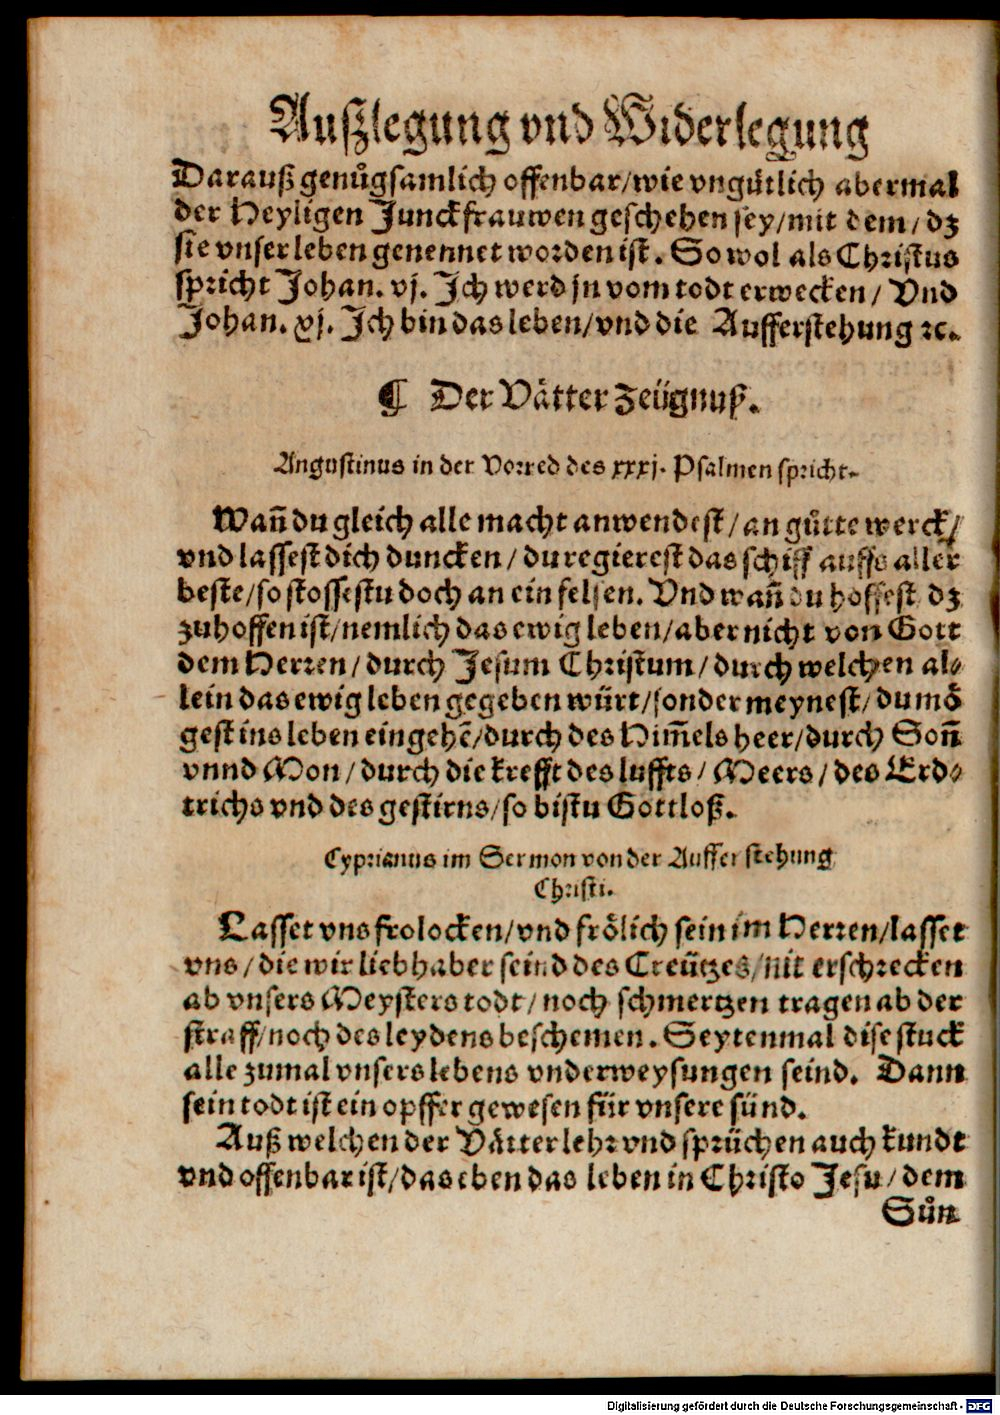 Außlegung vnd Widerlegung
Darauß genuͦgsamlich offenbar/wie vnguͤtlich abermal
der Heyligen Junckfrauwen geschehen sey/mit dem/dz
sie vnser leben genennet worden ist. So wol als Christus
spricht Johan. vj. Ich werd jn vom todt erwecken/ Vnd
Johan. xj. Ich bin das leben/vnd die Aufferstehung ꝛc.
¶ Der Vaͤtter zeügnuß.
Augustinus in der Vorred des xxxj. Psalmen spricht.
Wañ du gleich alle macht anwendest/an guͦtte werck/
vnd lassest dich duncken/du regierest das schiff auffs aller
beste/so stossestu doch an ein felsen. Vnd wañ du hoffest dz
zuhoffen ist/nemlich das ewig leben/aber nicht von Gott
dem Herren/durch Jesum Christum/durch welchen al⸗
lein das ewig leben gegeben würt/sonder meynest/du moͤ
gest ins leben eingehē/durch des Him̄els heer/durch Soñ
vnnd Mon/durch die krefft des luffts/Meers/des Erd⸗
trichs vnd des gestirns/so bistu Gottloß.
Cyprianus im Sermon von der Aufferstehung
Christi.
Lasset vns frolocken/vnd froͤlich sein im Herren/lasset
vns/die wir liebhaber seind des Creützes/nit erschrecken
ab vnsers Meysters todt/noch schmertzen tragen ab der
straff/noch des leydens beschemen. Seytenmal dise stuck
alle zumal vnsers lebens vnderweysungen seind. Dann
sein todt ist ein opffer gewesen für vnsere sünd.
Auß welchen der Vaͤtter lehr vnd sprüchen auch kundt
vnd offenbar ist/das eben das leben in Christo Jesu/dem
Suͦn
Digitalisierung gefördert durch die Deutsche Forschungsgemeinschaft - DFG